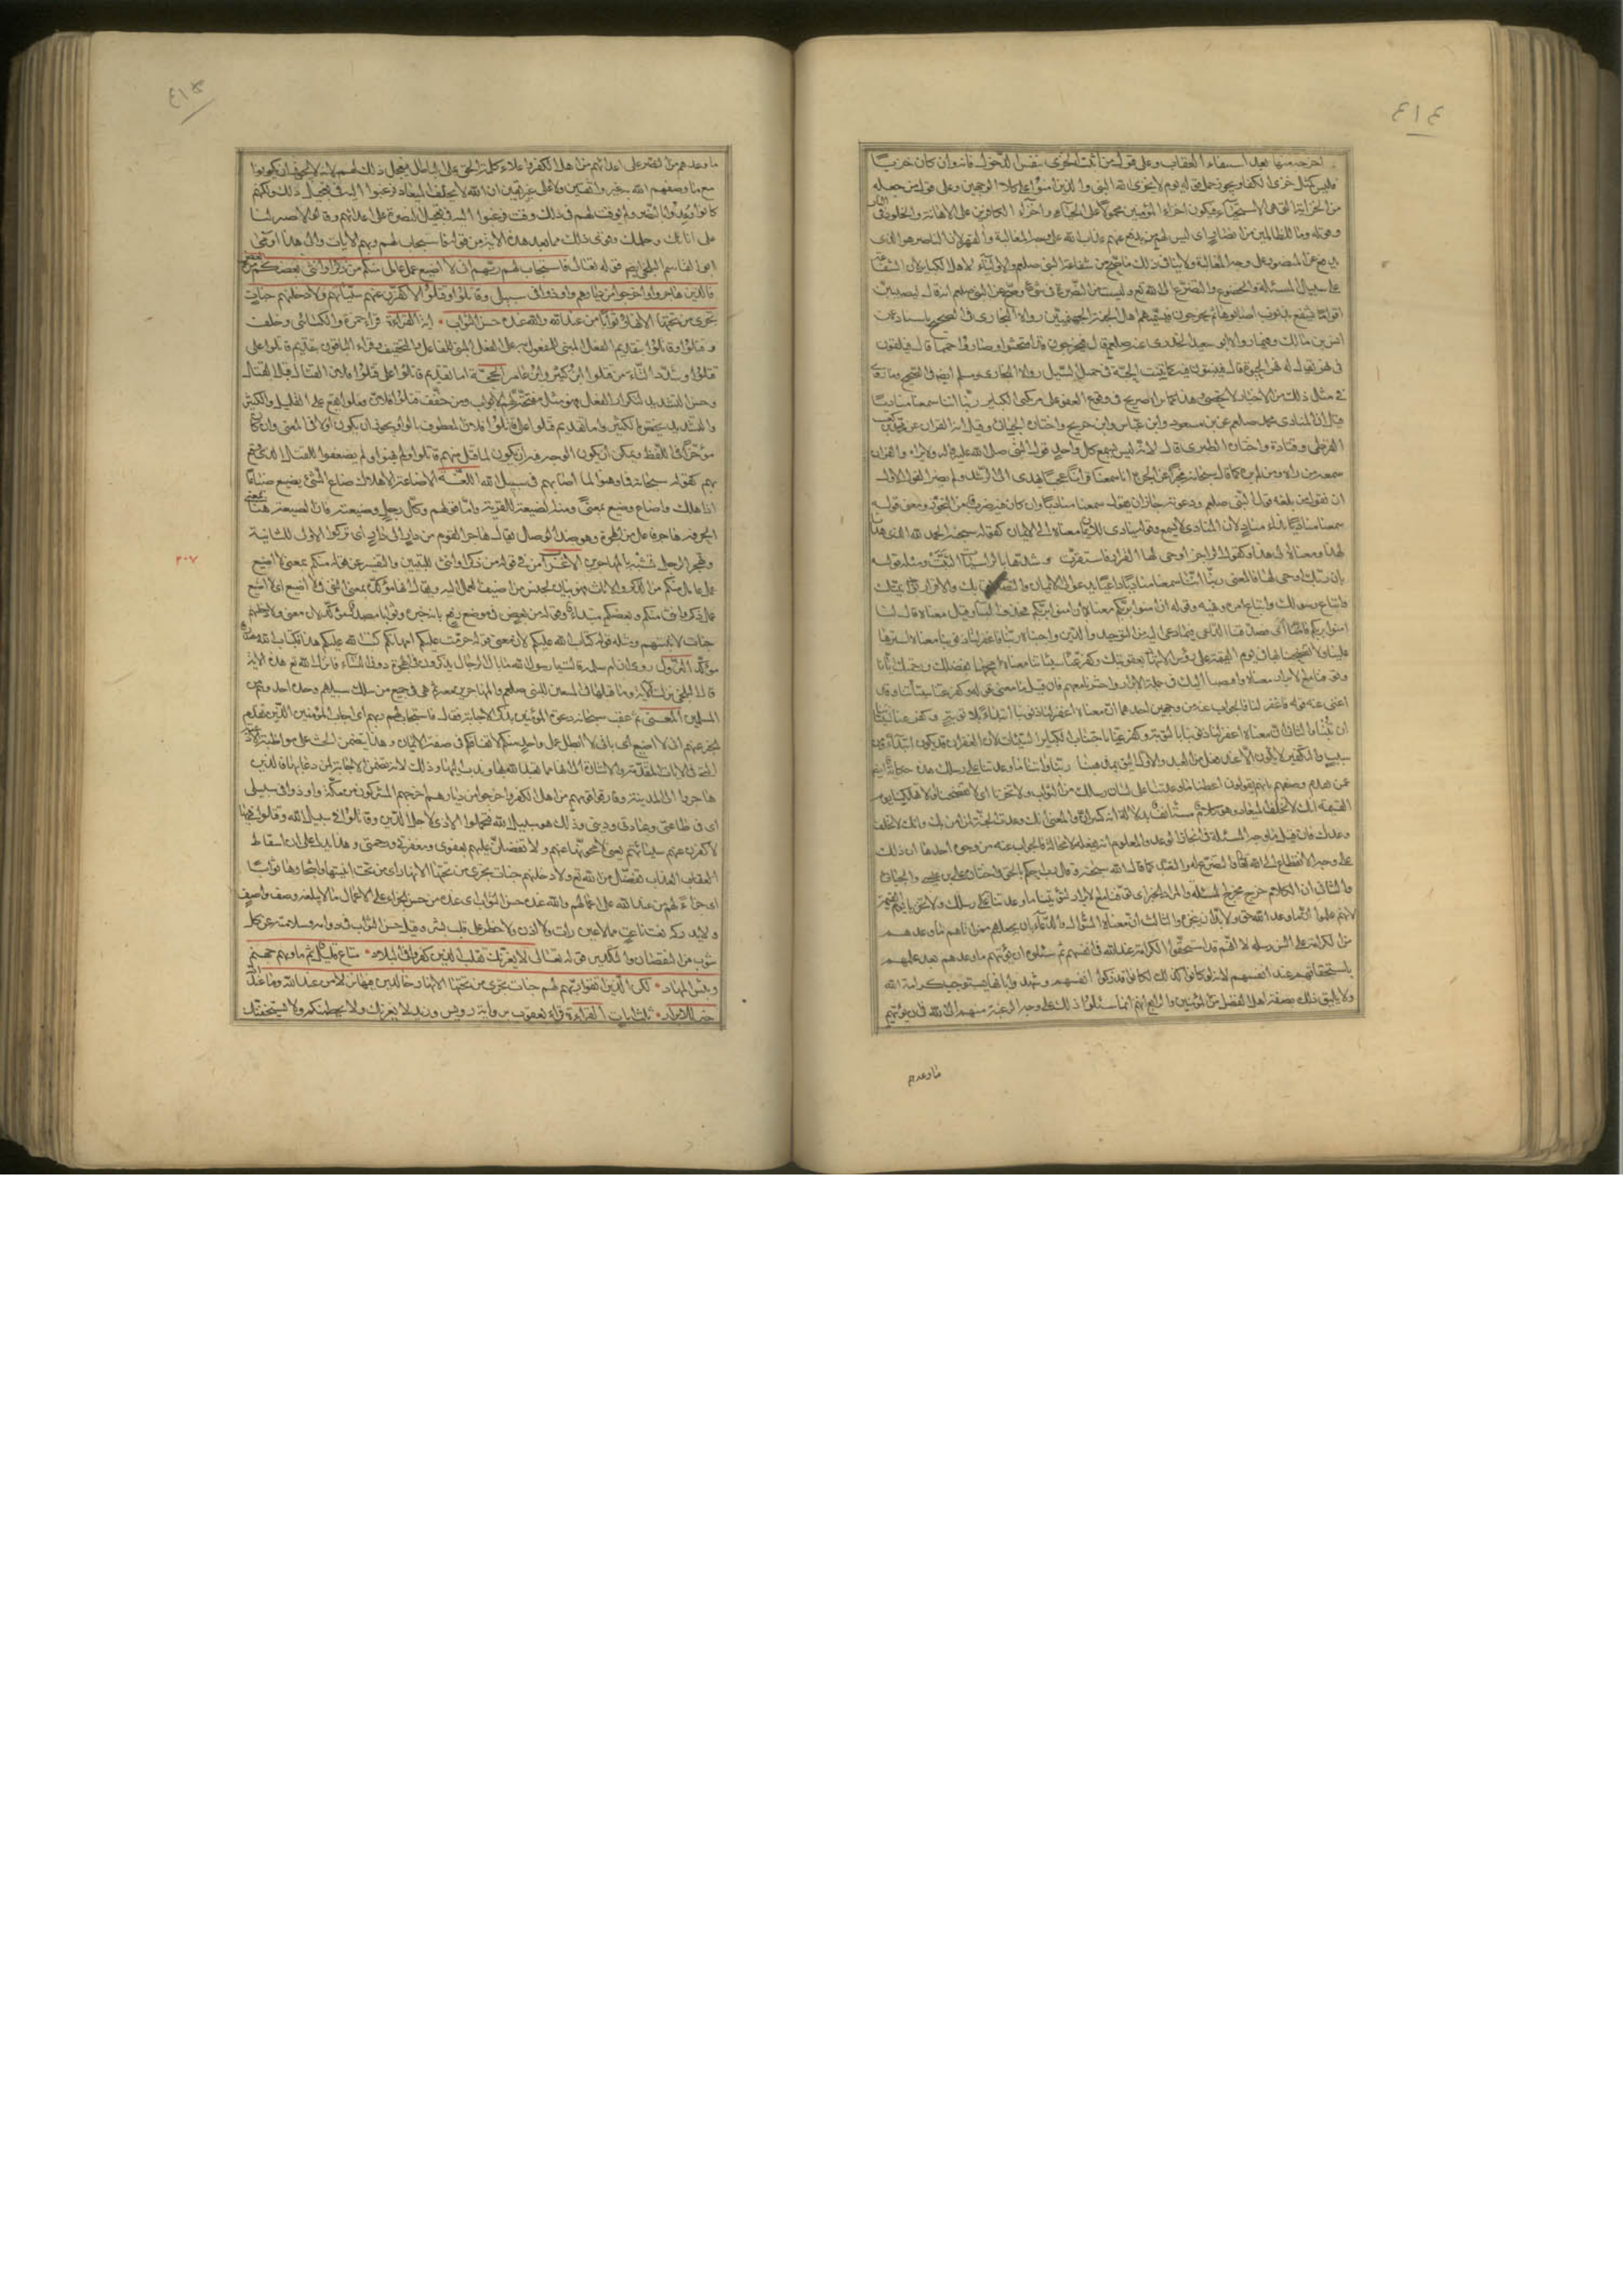 ٤١٤
تخرجه منها بعد استيفاء العقاب وعلى قول من اثبت الخزى بنفس الدخول فانه وان كان خزيا
فليس كمثل خزى الكفار ويجوز حمل قوله يوم لا يخزى الله النبى والذين امنوا على كلا الوجهين وعلى قول من جعله
من الخزاية التى هى الاستحياء فيكون اخزاء المؤمنين محمولا على الحياء واخزاء الكافرين على الاهانة والخلود فى النار
وقوله وما للظالمين من انصار اى ليس لهم من يدفع عنهم عذاب الله على وجه المغالبة والقهر لان الناصر هو الذى
يدفع عن المنصور على وجه المغالبة ولا ينافى ذلك ما صح من شفاعة النبى صلعم والاولياء لاهل الكباير لان الشفاعة
على سبيل المسئلة والخضوع والتضرع الى الله تع وليست من النصرة فى شئ وصح عن النبى صلعم انه قال ليصيبن
اقواما سفع بذنوب اصابوها ثم يخرجون فيسميهم اهل الجنة الجهنميين رواه البخارى فى الصحيح باسناده عن
انس بن مالك وفيما رواه ابو سعيد الخدرى عنه صلعم قال فيخرجون قد امتحشوا وصاروا حمما قال فيلقون
فى نهر يقال له نهر الحيوة قال فينبتون فيه كما ينبت الحبة فى حميل السيل رواه البخارى ومسلم ايضا فى الصحيح وما روى
فى مثل ذلك من الاخبار لا يحصى وهذا كما ترا صريح فى وقوع العفو عن مرتكبى الكباير ربنا اننا سمعنا مناديا
قيل ان المنادى محمد صلعم عن بن مسعود وابن عباس وابن جريج واختاره الجبائى وقيل انه القران عن محمد بن كعب
القرظى وقتادة واختاره الطبرى قال لانه ليس يسمع كل واحد قول النبى صلى الله عليه واله ولا يراه والقران
سمعه من راه ومن لم يره كما قال سبحانه مخبرا عن الجن انا سمعنا قرانا عجبا يهدى الى الرشد ولم ينصر القول الاول
ان يقول من بلغه قول النبى صلعم ودعوته جاز ان يقول سمعنا مناديا وان كان فيه ضرب من التجوز ومعنى قوله
سمعنا مناديا نداء مناد لان المنادى لا يسمع وقوله ينادى للايمان معناه الى الايمان كقوله سبحنه الحمد لله الذى هدانا
لهذا ومعناه الى هذا وكقول الراجز اوحى لها القرار فاستقرت وشدها بالراسيات الثبت ومثله قوله
بان ربك اوحى لها فالمعنى ربنا اننا سمعنا مناديا داعيا يدعو الى الايمان والتصديق بك والاقرار بوحدانيتك
واتباع رسولك واتباع امره ونهيه وقوله ان امنوا بربكم معناه بان امنوا بربكم فحذف الباء وقيل معناه قال لنا
امنوا بربكم فامنا اى صدقنا الداعى فيما دعى اليه من التوحيد والدين واجبناه ربنا فاغفر لنا ذنوبنا معناه استرها
علينا ولا تفضحنا بها فى يوم القيمة على رؤس الاشهاد بعقوبتك وكفر عنا سيئاتنا معناه امحها بفضلك ورحمتك ايانا
وتوفنا مع الابرار معناه واقبضنا اليك فى جملة الابرار واحشرنا معهم فان قيل ما معنى قوله وكفر عنا سيئاتنا وقد
اغنى عنه قوله فاغفر لنا فالجواب عنه من وجهين احدهما ان معناه اغفر لنا ذنوبنا ابتداء بلا توبة وكفر عنا سيئاتنا
ان تبنا والثانى ان معناه اغفر لنا ذنوبنا بالتوبة وكفر عنا باجتناب الكباير السيئات لان الغفران قد يكون ابتداء ومن
سبب والتكفير لا يكون الا عند فعل من العبد ربنا واتنا ما وعدتنا على رسلك هذه حكاية ايضا
عمن تقدم وصفهم بانهم يقولون اعطنا ما وعدتنا على لسان رسلك من الثواب ولا تخزنا اى لا تفضحنا ولا تهلكنا يوم
القيمة انك لا تخلف الميعاد وهو كلام مستانف بدلالة انه كسر ان والمعنى انك وعدت الجنة لمن امن بك وانك لا تخلف
وعدك فان قيل ما وجه المسئلة فى انجاز الوعد والمعلوم انه يفعله لا محالة فالجواب عنه من وجوه احدها ان ذلك
على وجه الانقطاع الى الله تعالى والتضرع له والتعبد كما قال الله سبحنه وقل رب احكم بالحق واختاره على بن عيسى والجبائى
والثانى ان الكلام خرج مخرج المسئلة والمراد الخبر اى توفنا مع الابرار لتؤتينا ما وعدتنا على رسلك ولا تخزنا يوم القيمة
لانهم علموا ان ما وعد الله حق ولابد ان ينجزه والثالث ان معناه السؤال والدعاء بان يجعلهم ممن اتاهم ما وعدهم
من الكرامة على السن رسله لا انهم قد استحقوا الكرامة عند الله فى انفسهم ثم سئلوه ان يؤتيهم ما وعدهم بعد علمهم
باستحقاقهم عند انفسهم لانه لو كانوا كذلك لكانوا قد زكوا انفسهم وشهدوا بانها مستوجب كرامة الله
ولا يليق ذلك بصفة اهل الفضل من المؤمنين والرابع انهم انما سئلوا ذلك على وجه الرغبة منهم الى الله فى ان يؤتيهم
ما وعدهم
٤١٥
ما وعدهم من النصر على اعدائهم من اهل الكفر واعلاء كلمة الحق على الباطل فيعجل ذلك لهم لانه لا يجوز ان يكونوا
مع ما وصفهم الله به غير واثقين ولا على غير يقين ان الله لا يخلف الميعاد فرغبوا اليه فى تعجيل ذلك ولكنهم
كانوا وعدوا النصر ولم يوقت لهم فى ذلك وقت فرغبوا اليه فى تعجيل النصرة على اعدائهم وقالوا لا صبر لنا
على اناتك وحلمك وقوى ذلك بما بعد هذه الاية من قوله فاستجاب لهم ربهم الايات والى هذا اومى
ابو القاسم البلخى ايم قوله تعالى فاستجاب لهم ربهم انى لا اضيع عمل عامل منكم من ذكر او انثى بعضكم من بعض
فالذين هاجروا واخرجوا من ديارهم واوذوا فى سبيلى وقاتلوا وقتلوا لاكفرن عنهم سيئاتهم ولادخلنهم جنات
تجرى من تحتها الانهار ثوابا من عند الله والله عنده حسن الثواب اية القراءة قراء حمزة والكسائى وخلف
وقتلوا وقاتلوا بتقديم الفعل المبنى للمفعول به على الفعل المبنى للفاعل والتخفيف وقراء الباقون بتقديم قاتلوا على
قتلوا وشدد التاء من قتلوا ابن كثير وابن عامر الحجة اما تقديم قاتلوا على قتلوا فلان القتال قبل القتل
وحسن التشديد لتكرار الفعل فهو مثل مفتحة لهم الابواب ومن خفف فقتلوا فلان فعلوا يقع على القليل والكثير
والتشديد يختص بالكثير واما تقديم قتلوا على قاتلوا فلان المعطوف بالواو يجوز ان يكون اولا فى المعنى وان كان
مؤخرا فى اللفظ ويمكن ان يكون الوجه فيه ان يكون لما قتل منهم قاتلوا ولم يهنوا ولم يضعفوا للقتل الذى وقع
بهم كقوله سبحانه فما وهنوا لما اصابهم فى سبيل الله اللغة الاضاعة الاهلاك ضاع الشئ يضيع ضياعا
اذا هلك واضاع وضيع بمعنى ومنه الضيعة للقرية واما قولهم وكل رجل وضيعته فان الضيعة هنا بمعنى
الحرفة هاجر فاعل من الهجرة وهو ضد الوصال يقال هاجر القوم من دار الى دار اى تركوا الاولى للثانية
وتهجر الرجل تشبه بالمهاجرين الاعراب من فى قوله من ذكر او انثى للتبيين والتفسير عن قوله منكم بمعنى لا اضيع
عمل عامل منكم من الذكور والاناث فهو بيان لجنس من اضيف العمل اليه ويقال انها مؤكدة بمعنى النفى فى لا اضيع اى لا اضيع
عمل ذكر وانثى منكم وبعضكم مبتداء وقوله من بعض فى موضع رفع بانه خبره وثوابا مصدر مؤكد لان معنى ولادخلنهم
جنات لاثيبنهم ومثله قوله كتاب الله عليكم لان معنى قوله حرمت عليكم امهاتكم كتب الله عليكم هذا فكتاب الله مصدر
مؤكد النزول روى ان ام سلمة قالت يا رسول الله ما بال الرجال يذكرون فى الهجرة دون النساء فانزل الله تع هذه الاية
قال البلخى نزلت الاية وما قبلها فى المتبعين للنبى صلعم والمهاجرين معه ثم هى فى جميع من سلك سبيلهم وحذا حذوهم من
المسلمين المعنى ثم عقب سبحانه دعوة المؤمنين بذكر الاجابة فقال فاستجاب لهم ربهم اى اجاب المؤمنين الذين تقدم
الخبر عنهم انى لا اضيع اى بانى لا ابطل عمل واحد منكم لاتفاقكم فى صفة الايمان وهذا يتضمن الحث على مواظبة الادعية
التى فى الايات المتقدمة والاشارة الى انها مما تعبد الله بها وندب اليها وذلك لانه تضمن الاجابة لمن دعا بها فالذين
هاجروا الى المدينة وفارقوا قومهم من اهل الكفر واخرجوا من ديارهم اخرجهم المشركون من مكة واوذوا فى سبيلى
اى فى طاعتى وعبادتى ودينى وذلك هو سبيل الله فتحملوا الاذى لاجل الدين وقاتلوا فى سبيل الله وقتلوا فيها
لاكفرن عنهم سيئاتهم يعنى لامحونها عنهم ولاتفضلن عليهم بعفوى ومغفرتى ورحمتى وهذا يدل على ان اسقاط
العقاب تفضل من الله تع ولادخلنهم جنات تجرى من تحتها الانهار اى من تحت ابنيتها واشجارها ثوابا
اى جزاء لهم من عند الله على اعمالهم والله عنده حسن الثواب اى عنده من حسن الجزاء على الاعمال ما لا يبلغه وصف واصف
ولا يدركه نعت ناعت مما لا عين رات ولا اذن ولا خطر على قلب بشر وقيل حسن الثواب فى دوامه وسلامته عن كل
شوب من النقصان والتكدير قوله تعالى لا يغرنك تقلب الذين كفروا فى البلاد متاع قليل ثم ماويهم جهنم
وبئس المهاد لكن الذين اتقوا ربهم لهم جنات تجرى من تحتها الانهار خالدين فيها نزلا من عند الله وما عند الله
خير للابرار ثلث ايات القراءة قراء يعقوب برواية رويس وزيد لا يغرنك ولا يحطمنكم ولا يستخفنك
٢٠٧